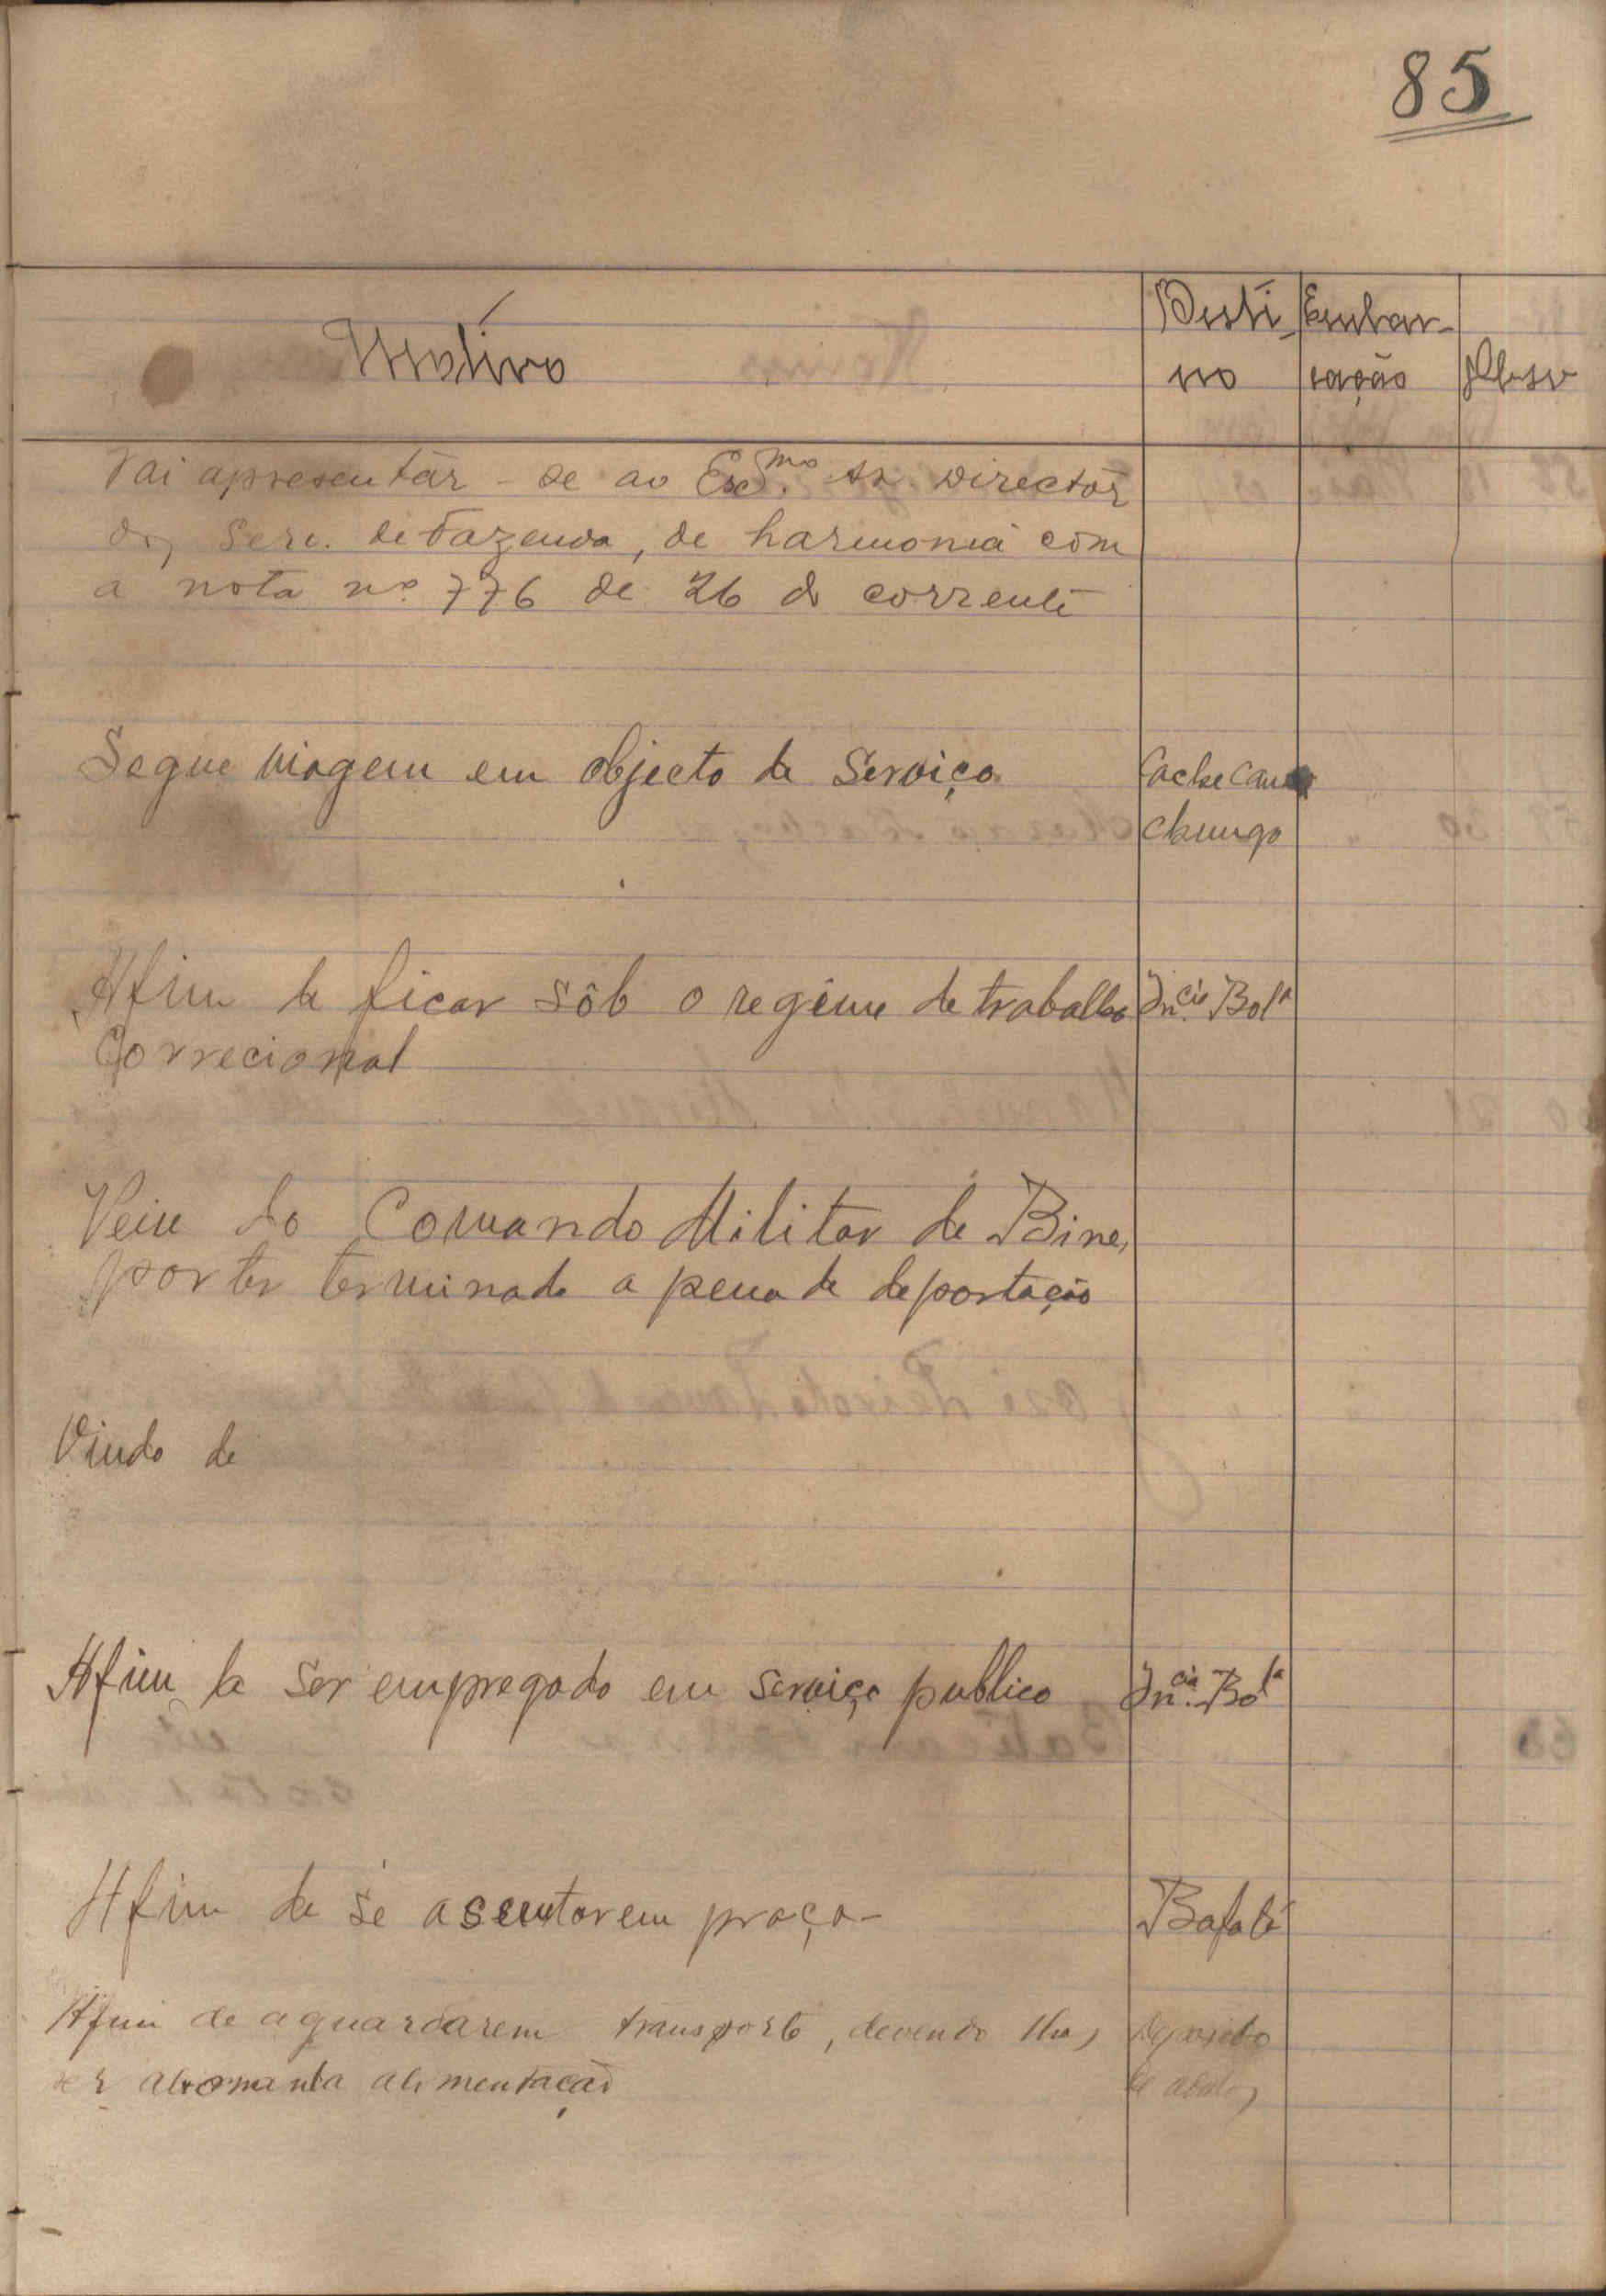 85
Motivo
Desti-
no
Embar-
cação
Obser
Vai apresentár-se ao Exc.mo Sr. Directór
dos Serv. de Fazenda, de harmonia com
a nota nº 776 de 26 do corrente
Segue viagem em objecto de Serviço.
Cacheu Can
chungo
Afim de ficar sôb o regime de trabalho
Correcional
In.cia Bola
Veiu do Comando Militar de Bine,
por ter terminado a pena de deportação
Vindo de
Afim de ser empregado em serviço publico
In.cia Bola
Afim de se asentarem praça-
Bafatá
Afim de aguardarem transporte, devendo lhes
ser abonada alimentação
Deposito
de